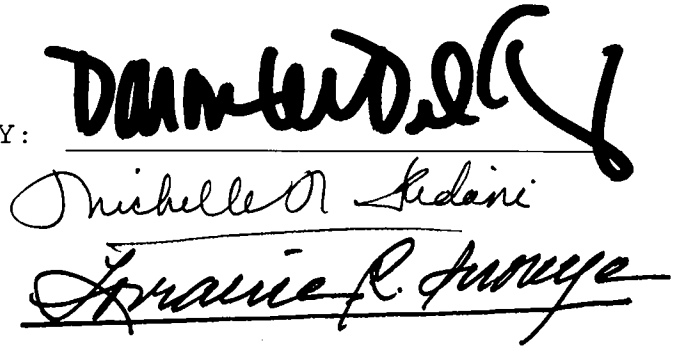 Y:
Michelle N Kidani
Lorraine R. Inouye